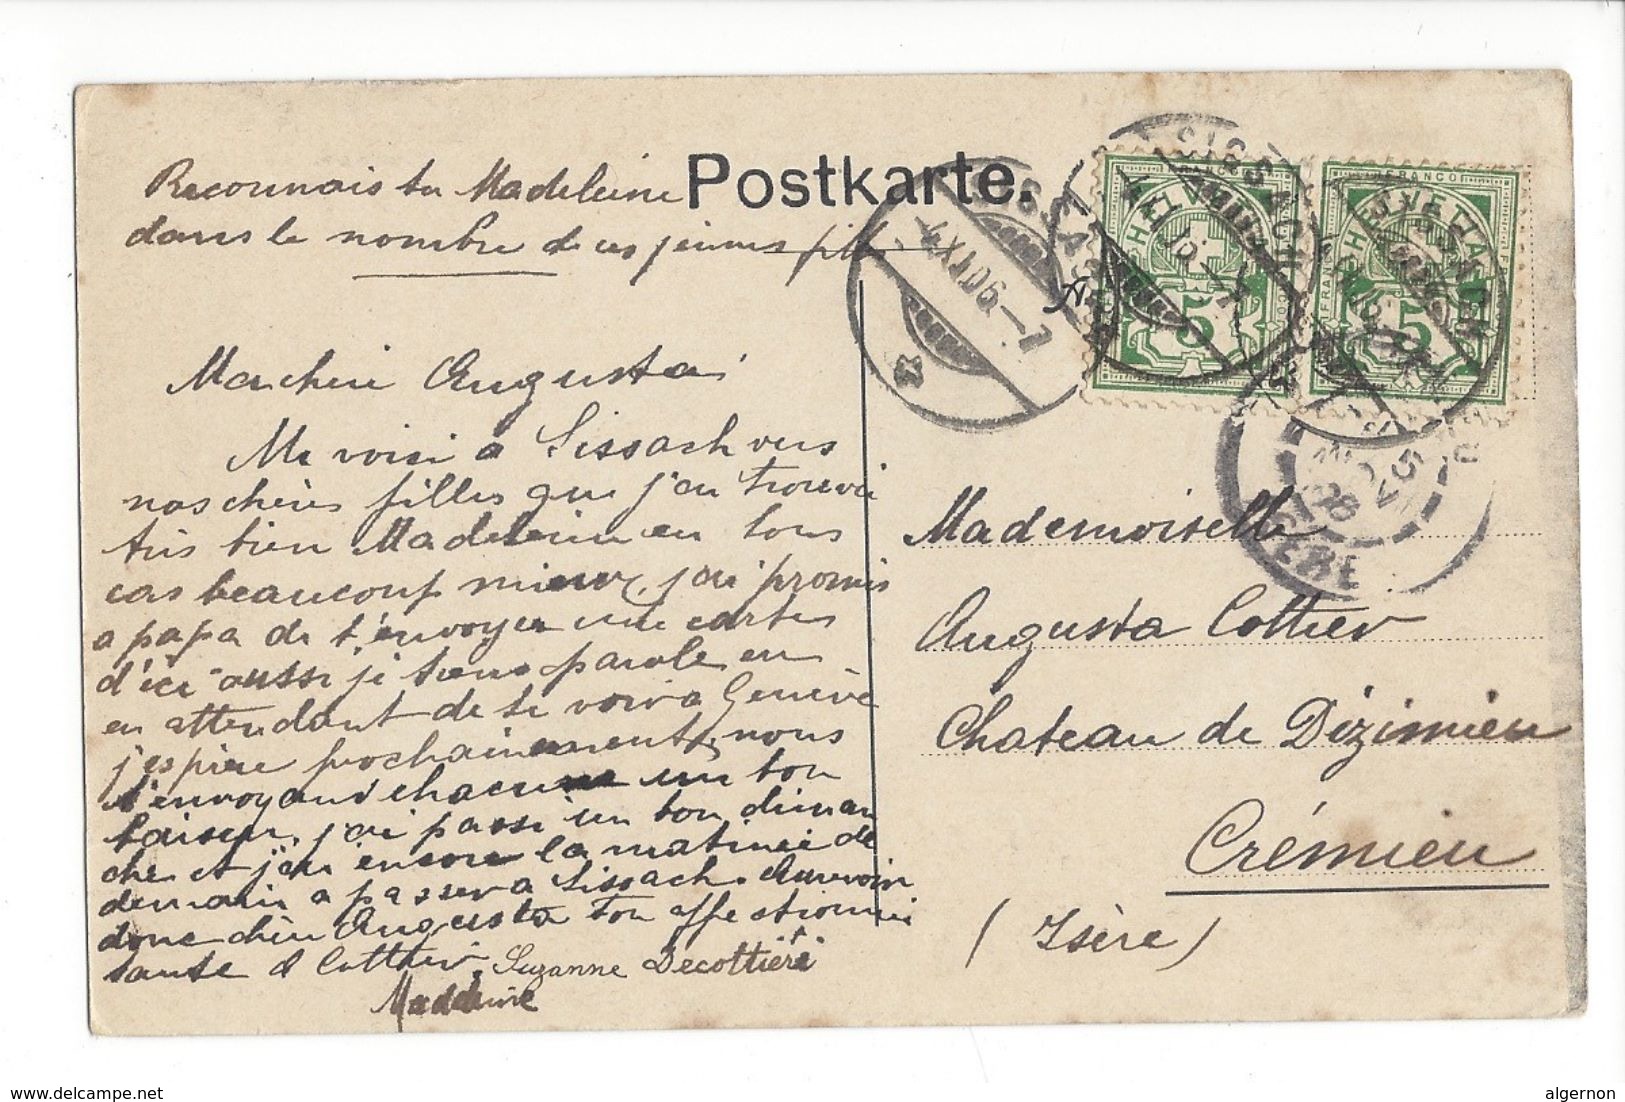 Postkarte.
Reconnais tu Madeleine
dans le nombre de ces jeunes filles
Ma chère Augusta
Me voici a Sissach vers
nos chères filles que j'ai trouvé
très bien Madeleine en tous
cas beaucoup mieux, j'ai promis
a papa de t'envoyer une cartes
d'ici aussi je tiens parole en
en attendant de te voir a Genève
j'espère prochainement, nous
t'envoyant chacune un bon
baiser, j'ai passé un bon diman
che et j'ai encore la matinée de
demain a passer a Sissach. Aurevoir
donc chère Augusta ton affectionnée
tante Cottier. Suzanne Decottière
Madeleine
SISSACH
4.XI.06.-7
HELVETIA
FRANCO
5
HELVETIA
FRANCO
5
ISERE
Mademoiselle
Augusta Cottier
Chateau de Dizimieu
Crémieu
(Isère)
www.delcampe.net
algernon